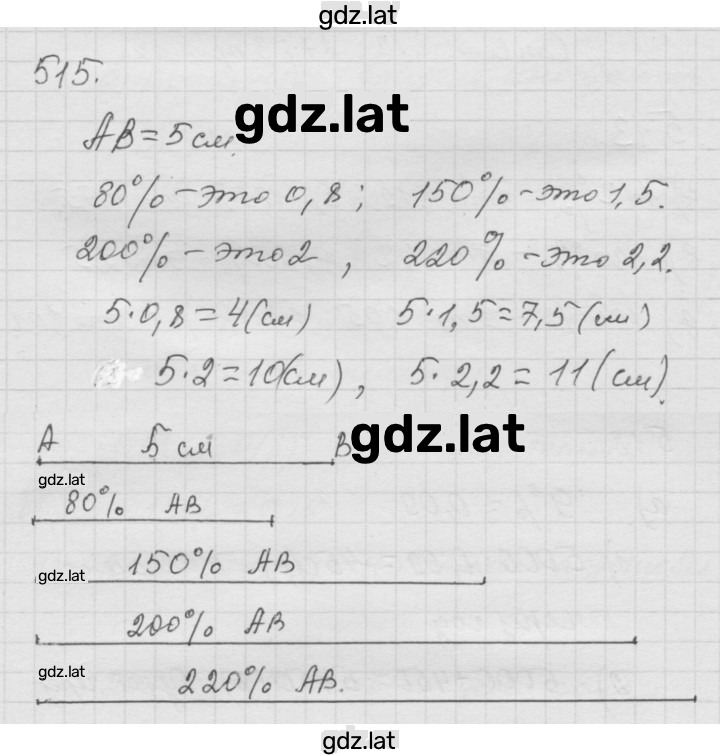 gdz.lat
515.
gdz.lat
AB = 5 см
80% - это 0,8; 150% - это 1,5.
200% - это 2, 220% - это 2,2.
5·0,8 = 4(см) 5·1,5 = 7,5(см)
5·2 = 10(см), 5·2,2 = 11(см).
A 5 см B gdz.lat
gdz.lat
80% AB
150% AB
gdz.lat
200% AB
gdz.lat 220% AB.
gdz.lat